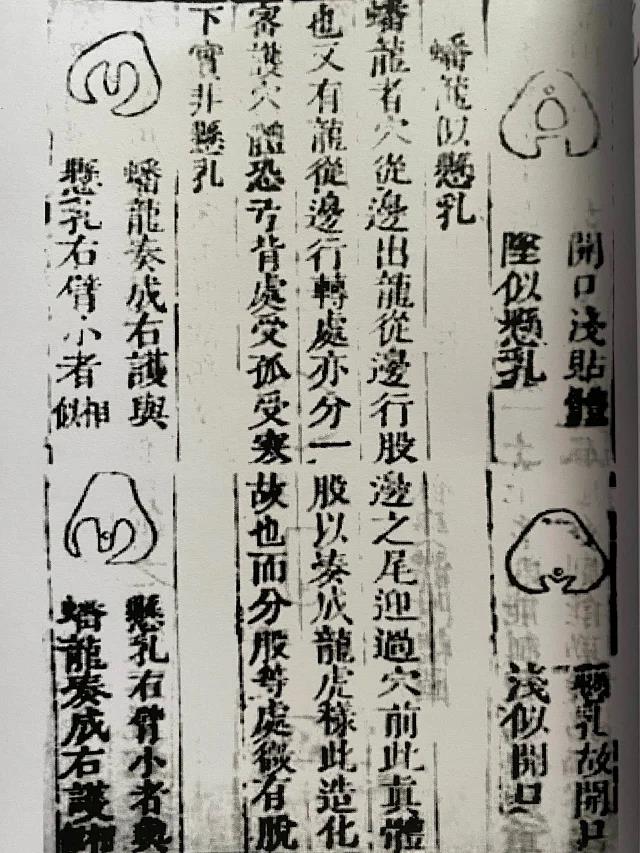 開口淺貼體
墜似懸乳
懸乳故開口
淺似開口
蟠龍似懸乳
蟠龍者穴從邊出龍從邊行股邊之尾迎過穴前此真體
也又有龍從邊行轉處亦分一股以湊成龍虎樣此造化
審護穴體恐
背處受孤受寒故也而分股等處微有脫
下實非懸乳
蟠龍湊成右護與
懸乳右臂小者相似
懸乳右臂小者與
蟠龍湊成右護相